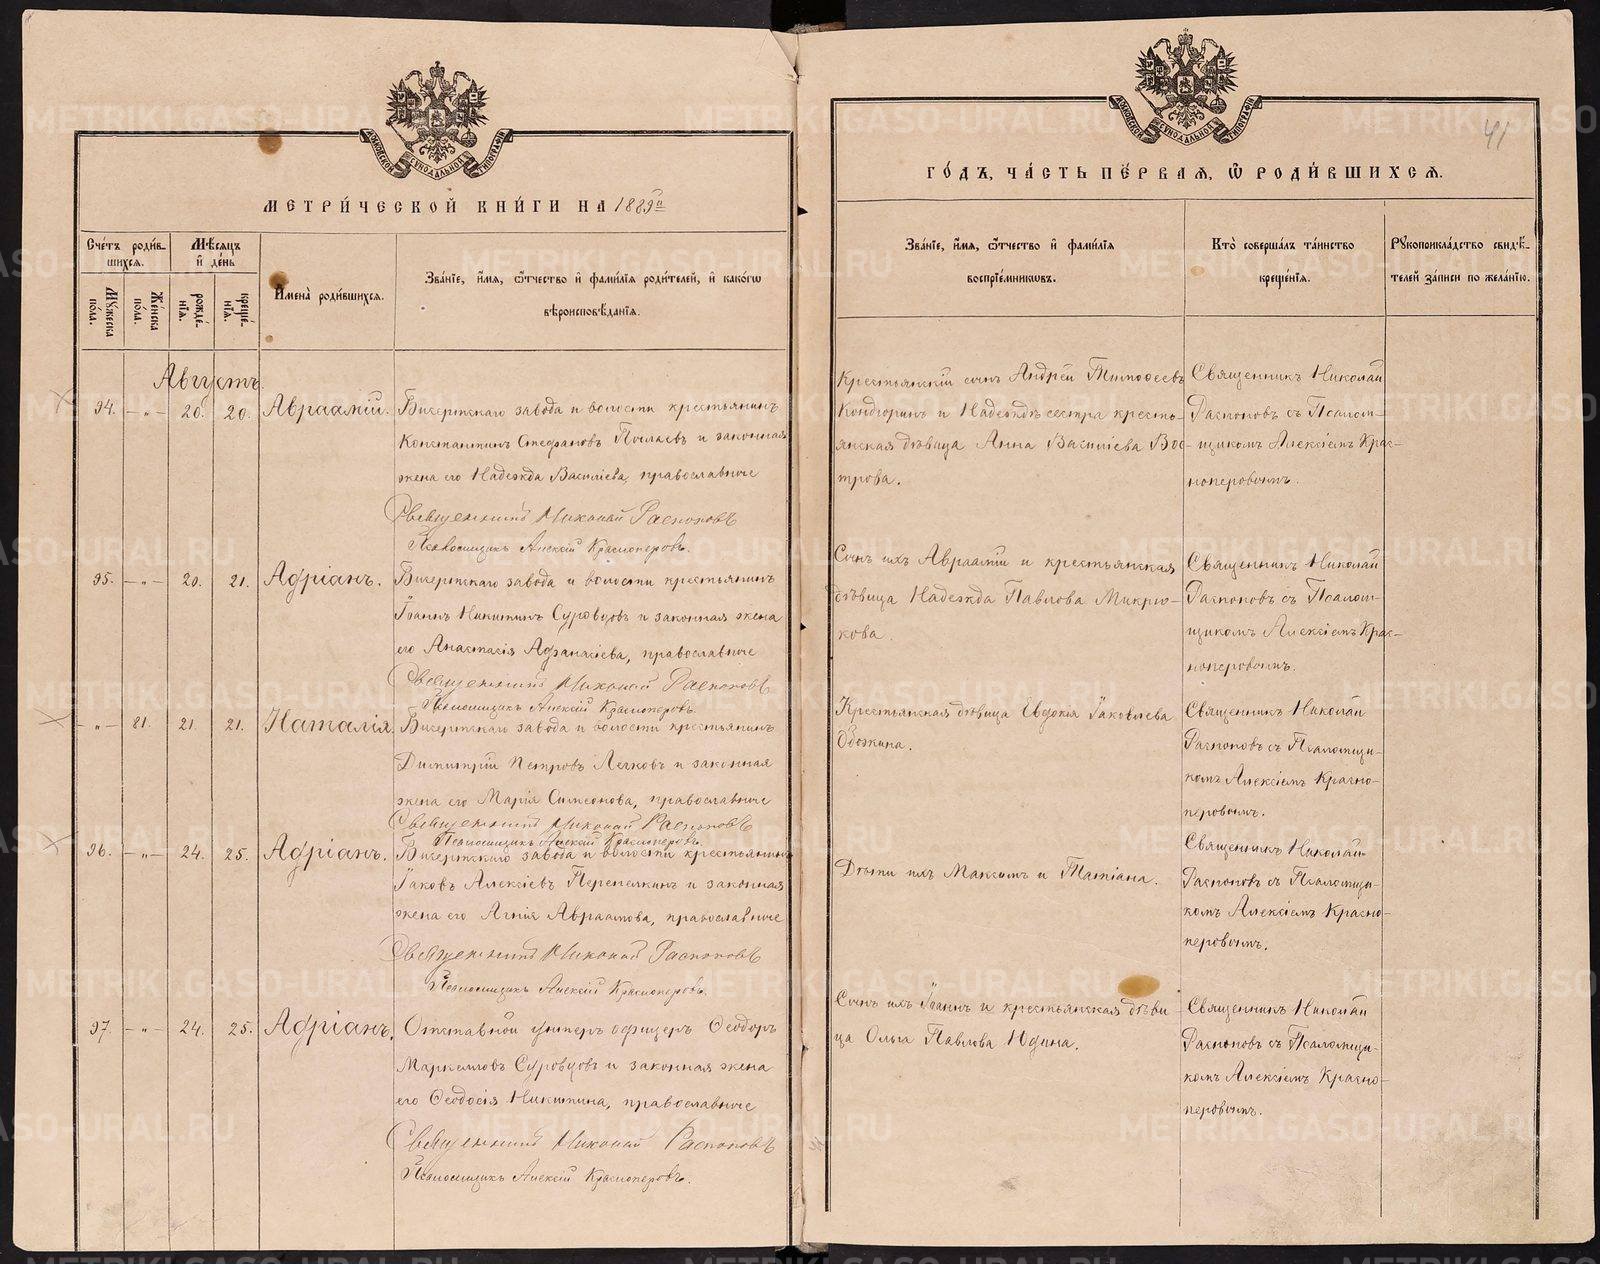 МЕТРИ́ЧЕСКОЙ КНИ́ГИ НА 1889й
Сче́тъ роди́в-
шихся.
Мѣ́сяцъ
и҆ де́нь
И҆мена̀ роди́вшихся.
Зва́нїе, и҆́мя, ѻ҆́тчество и҆ фами́лїя роди́телей, и҆ како́гѡ
вѣроисповѣ́данїя.
Мꙋжеска
по́ла.
Же́нска
по́ла.
рожде́-
нїя.
креще́-
нїя.
Августъ.
94. — „ — 20. 20. Авраамій. Бисертскаго завода и волости крестьянинъ
Константинъ Стефановъ Пылаевъ и законная
жена его Надежда Василіева, православные
Священникъ Николай Распоповъ
Псаломщикъ Алексій Красноперовъ.
95. — „ — 20. 21. Адріанъ. Бисертскаго завода и волости крестьянинъ
Іоаннъ Никитинъ Суровцовъ и законная жена
его Анастасія Афанасіева, православные
Священникъ Николай Распоповъ
Псаломщикъ Алексій Красноперовъ.
— „ — 81. 21. 21. Наталія. Бисертскаго завода и волости крестьянинъ
Димитрій Петровъ Легковъ и законная
жена его Марія Симеонова, православные
Священникъ Николай Распоповъ
Псаломщикъ Алексій Красноперовъ.
96. — „ — 24. 25. Адріанъ. Бисертскаго завода и волости крестьянинъ
Іаковъ Алексіевъ Перепелкинъ и законная
жена его Агнія Авраамова, православные
Священникъ Николай Распоповъ
Псаломщикъ Алексій Красноперовъ.
97. — „ — 24. 25. Адріанъ. Отставной унтеръ офицеръ Ѳеодоръ
Маркелловъ Суровцовъ и законная жена
его Ѳеодосія Никитина, православные
Священникъ Николай Распоповъ
Псаломщикъ Алексій Красноперовъ.
41
ГО́ДЪ, ЧА́СТЬ ПЕ́РВАЯ, Ѡ҆ РОДИ́ВШИХСЯ.
Зва́нїе, и҆́мя, ѻ҆́тчество и҆ фами́лїя
воспрїе́мниковъ.
Кто̀ соверша́лъ та́инство
креще́нїя.
Рꙋкоприкла́дство свидѣ́-
телей за́писи по жела́нїю.
Крестьянскій сынъ Андрей Тимоѳеевъ
Кондюринъ и Надеждѣ сестра кресть-
янская дѣвица Анна Василіева Вос-
трова.
Священникъ Николай
Распоповъ съ Псалом-
щикомъ Алексіемъ Крас-
ноперовымъ.
Сынъ ихъ Авраамій и крестьянская
дѣвица Надежда Павлова Микрю-
кова.
Священникъ Николай
Распоповъ съ Псалом-
щикомъ Алексіемъ Крас-
ноперовымъ.
Крестьянская дѣвица Евдокія Іаковлева
Обожина.
Священникъ Николай
Распоповъ съ Псаломщи-
комъ Алексіемъ Красно-
перовымъ.
Дѣти ихъ Максимъ и Татіана.
Священникъ Николай
Распоповъ съ Псаломщи-
комъ Алексіемъ Красно-
перовымъ.
Сынъ ихъ Іоаннъ и крестьянская дѣви-
ца Ольга Павлова Юдина.
Священникъ Николай
Распоповъ съ Псаломщи-
комъ Алексіемъ Красно-
перовымъ.
METRIKI.GASO-URAL.RU